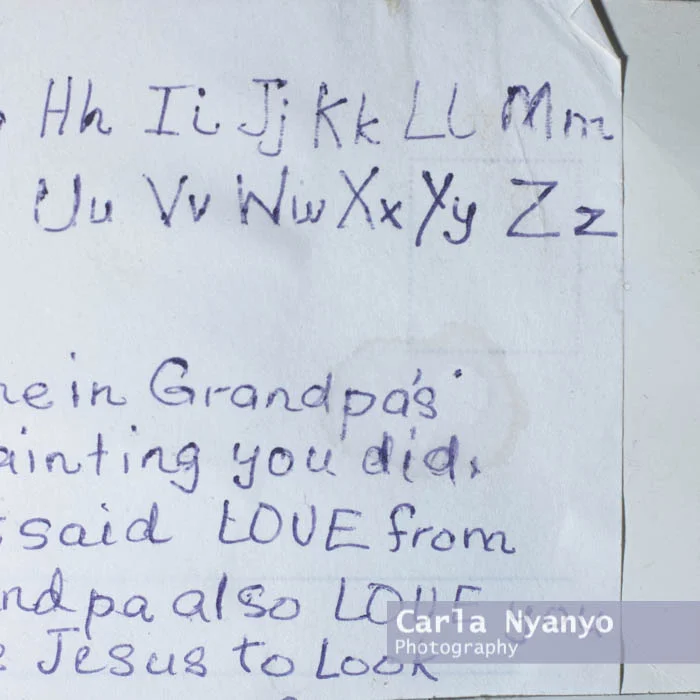 Hh Ii Jj Kk Ll Mm
Uu Vv Ww Xx Yy Zz
in Grandpa's
ainting you did,
said LOVE from
ndpa also LOVE you
Jesus to Look
Carla Nyanyo
Photography